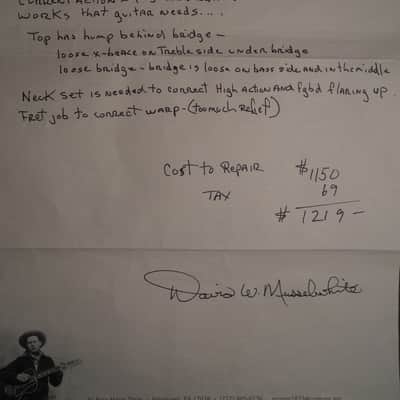 works that guitar needs....
Top has hump behind bridge -
loose x-brace on Treble side under bridge
loose bridge - bridge is loose on bass side and in the middle
Neck set is needed to correct High Action and Fgbd flaring up.
Fret job to correct warp - (too much relief)
Cost to Repair $1150
TAX 69
$ 1219 -
David W. Musselwhite